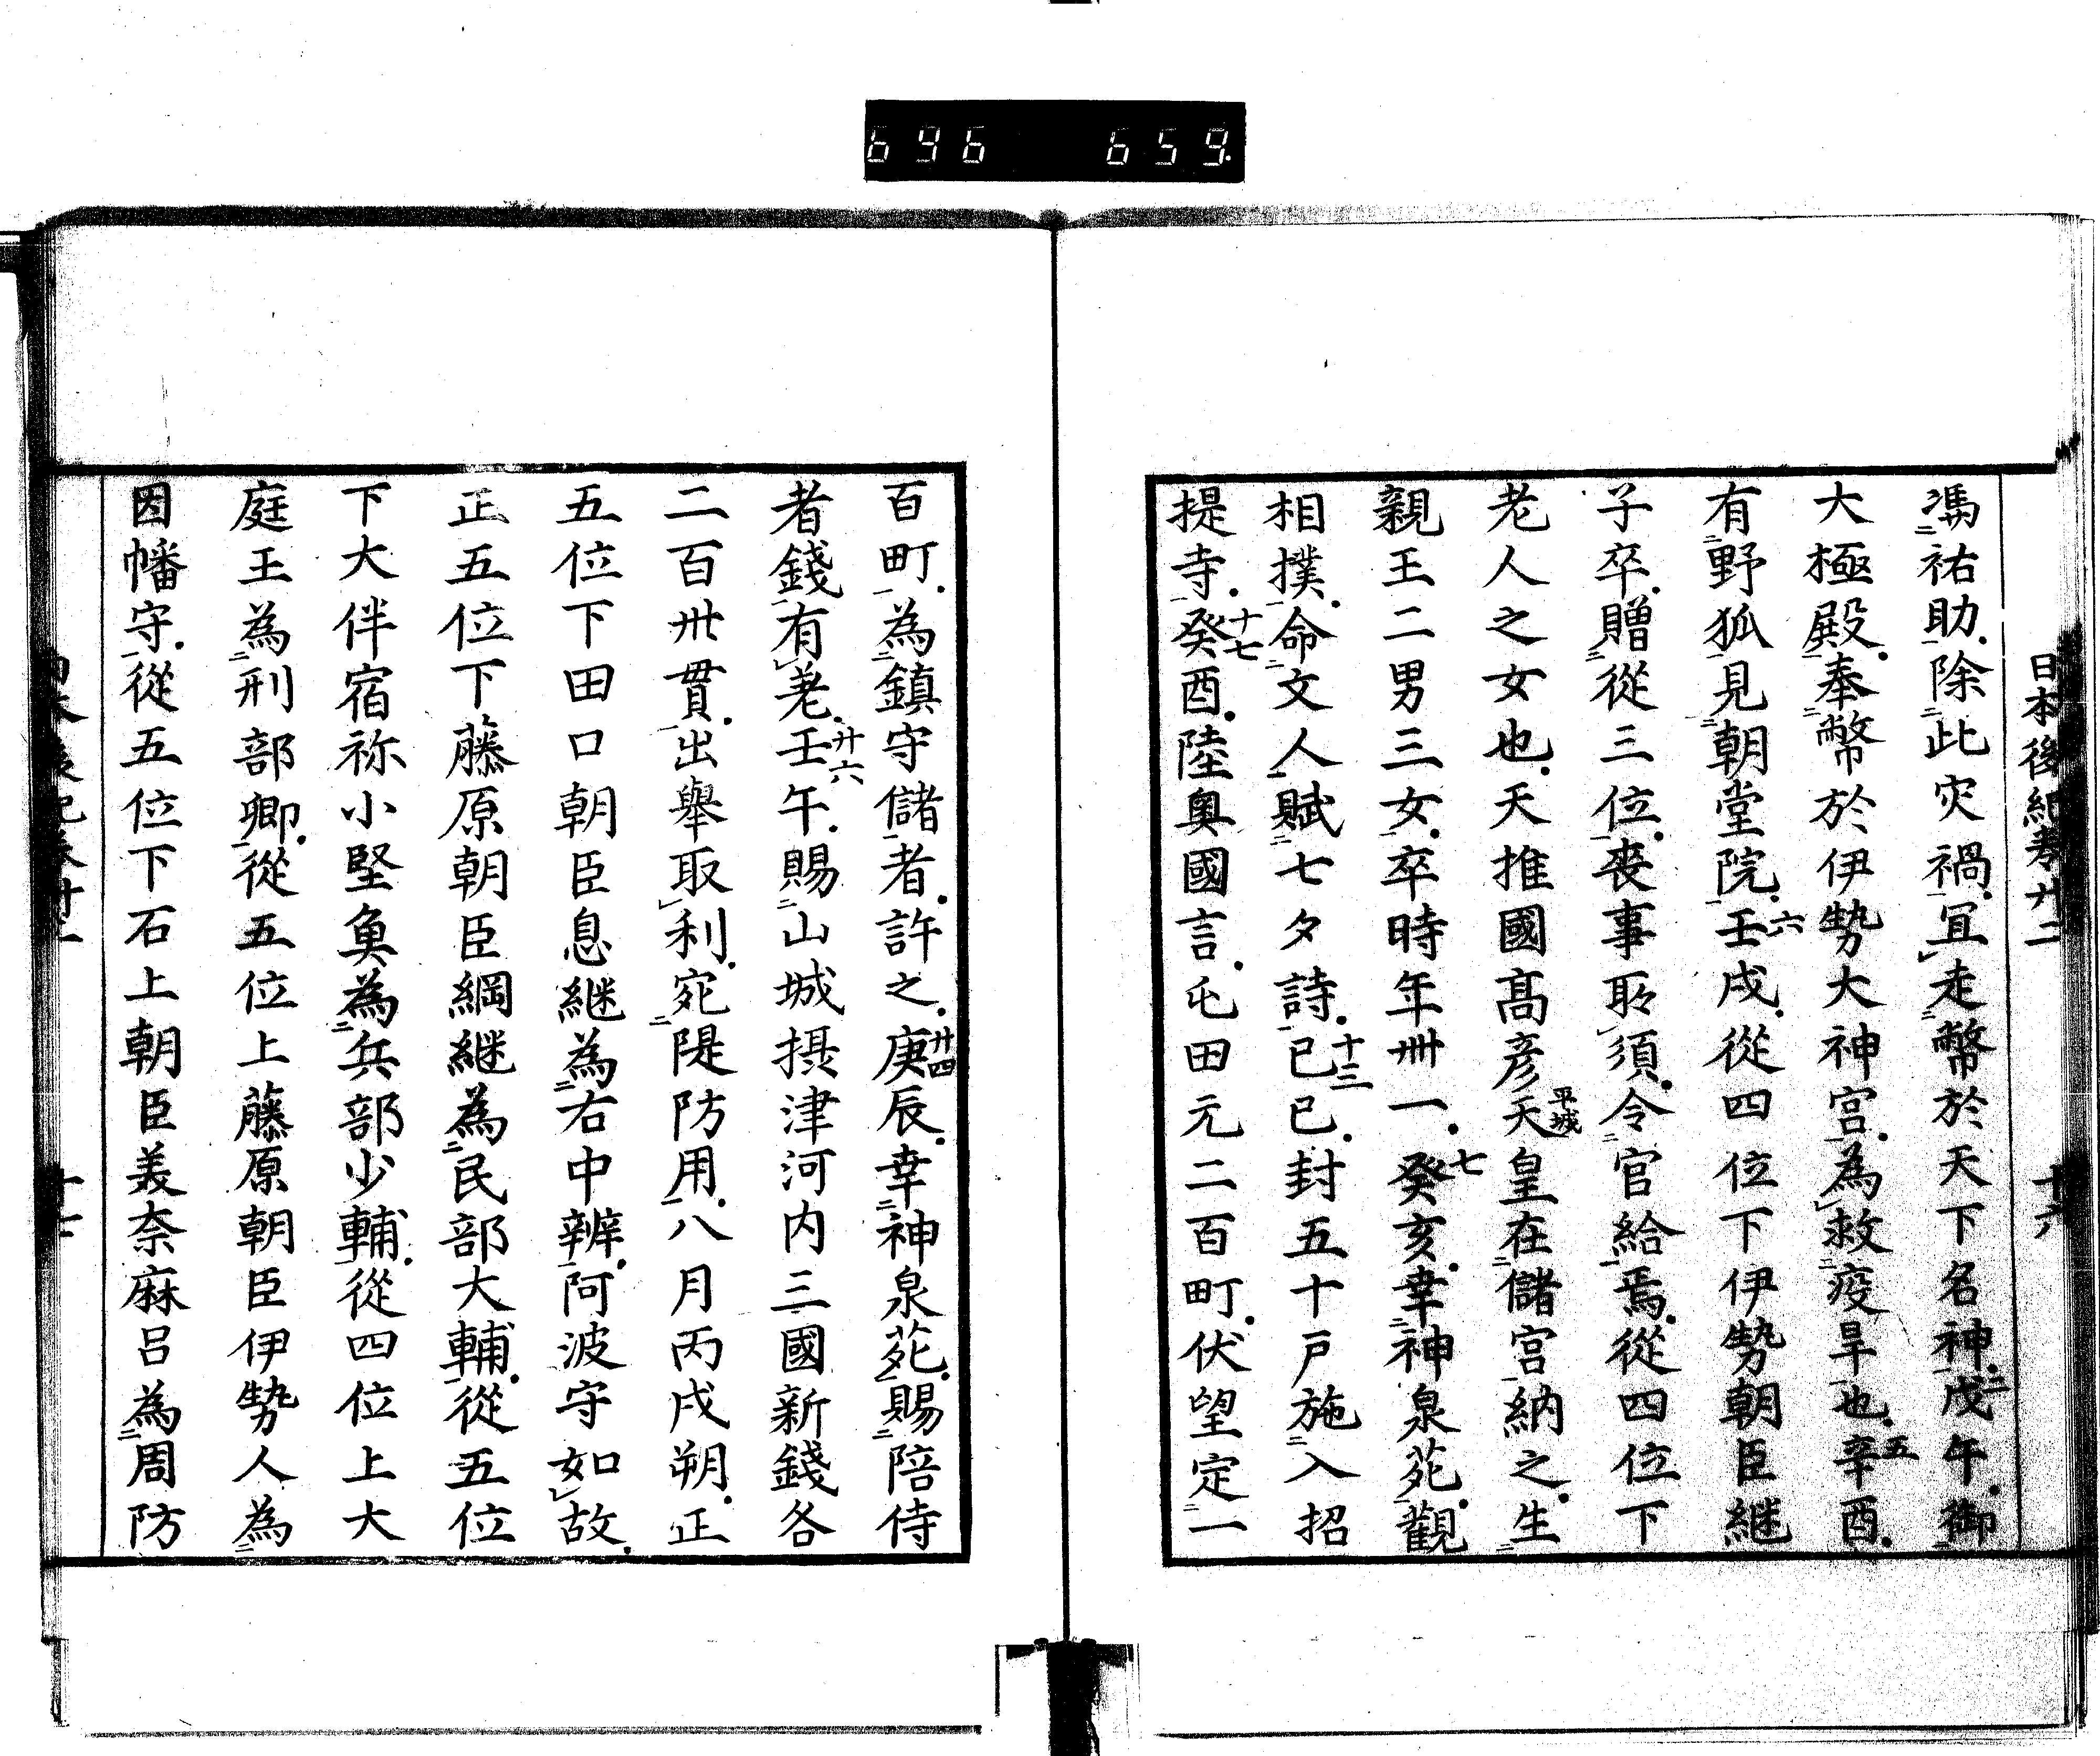 696 659
日本後紀卷廿二 十六
馮祐助除此灾禍冝走幣於天下名神戊二午御
大極殿奉幣於伊勢大神宮為救疫旱也辛五酉
有野狐見朝堂院壬六戌從四位下伊勢朝臣継
子卒贈從三位喪事所須令官給焉從四位下
老人之女也天推國髙彦天平城皇在儲宮納之生
親王二男三女卒時年卌一癸七亥幸神泉苑觀
相撲命文人賦七夕詩己十三巳封五十戸施入招
提寺癸十七酉陸奥國言屯田元二百町伏望定一
百町為鎮守儲者許之庚廿四辰幸神泉苑賜陪侍
者錢有差壬廿六午賜山城摂津河内三國新錢各
二百卅貫出舉取利宛隄防用八月丙戌朔正
五位下田口朝臣息継為右中辨阿波守如故
正五位下藤原朝臣綱継為民部大輔從五位
下大伴宿祢小堅魚為兵部少輔從四位上大
庭王為刑部卿從五位上藤原朝臣伊勢人為
因幡守從五位下石上朝臣美奈麻呂為周防